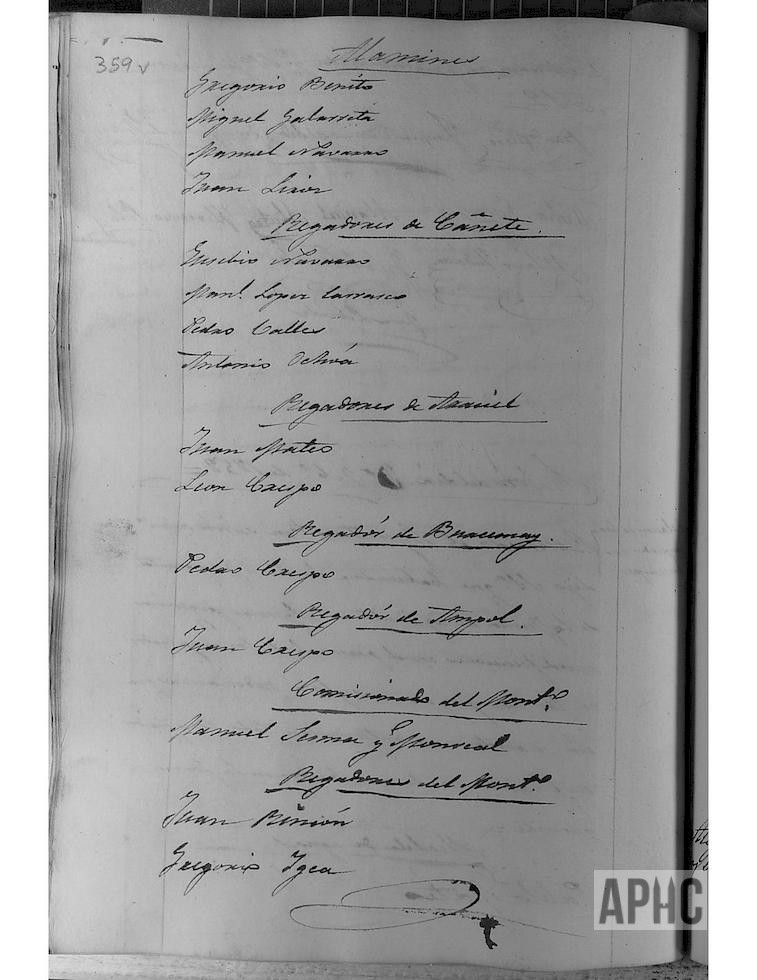 359v
Alamines
Gregorio Benito
Miguel Galarreta
Manuel Navarro
Juan
Regadores de Cañete.
Eusebio Navarro
Manl. Lopez Carrasco
Pedro Calles
Antonio Ochoa
Regadores de Araviel
Juan Mateo
Leon Crespo
Regadór de
Pedro Crespo
Regadór de Ampol.
Juan Crespo
Comisionado del Monte.
Manuel Serma y Monreal
Regadores del Monte.
Juan Rincón
Gregorio Igea
APHC